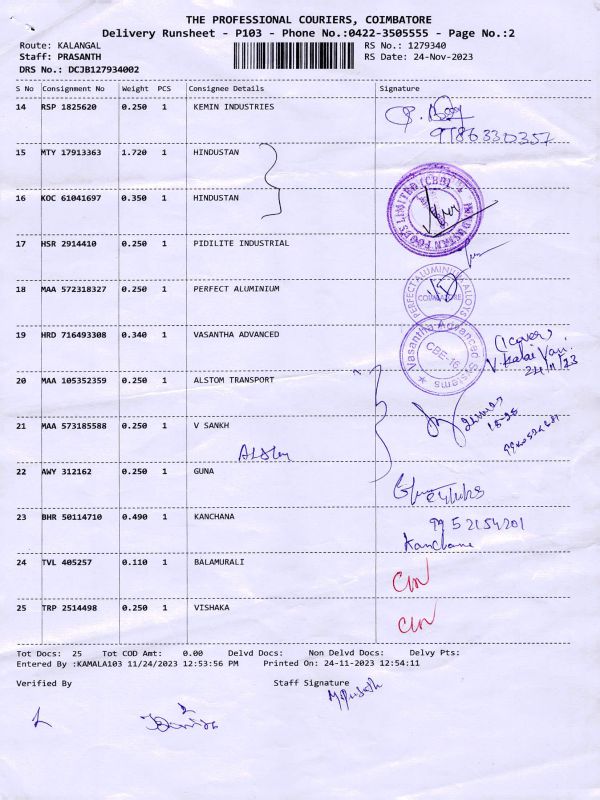 THE PROFESSIONAL COURIERS, COIMBATORE
Delivery Runsheet - P103 - Phone No.:0422-3505555 - Page No.:2
Route: KALANGAL RS No.: 1279340
Staff: PRASANTH RS Date: 24-Nov-2023
DRS No.: DCJB127934002
S No Consignment No Weight PCS Consignee Details Signature
14 RSP 1825620 0.250 1 KEMIN INDUSTRIES
15 MTY 17913363 1.720 1 HINDUSTAN
16 KOC 61041697 0.350 1 HINDUSTAN
17 HSR 2914410 0.250 1 PIDILITE INDUSTRIAL
18 MAA 572318327 0.250 1 PERFECT ALUMINIUM
PERFECT ALUMINIUM ALLOYS
COIMBATORE
19 HRD 716493308 0.340 1 VASANTHA ADVANCED
Vasantha Advanced Systems
CBE-16
24/11/23
20 MAA 105352359 0.250 1 ALSTOM TRANSPORT
21 MAA 573185588 0.250 1 V SANKH
22 AWY 312162 0.250 1 GUNA
23 BHR 50114710 0.490 1 KANCHANA 9952154201
Kanchana
24 TVL 405257 0.110 1 BALAMURALI
25 TRP 2514498 0.250 1 VISHAKA
Tot Docs: 25 Tot COD Amt: 0.00 Delvd Docs: Non Delvd Docs: Delvy Pts:
Entered By :KAMALA103 11/24/2023 12:53:56 PM Printed On: 24-11-2023 12:54:11
Verified By Staff Signature